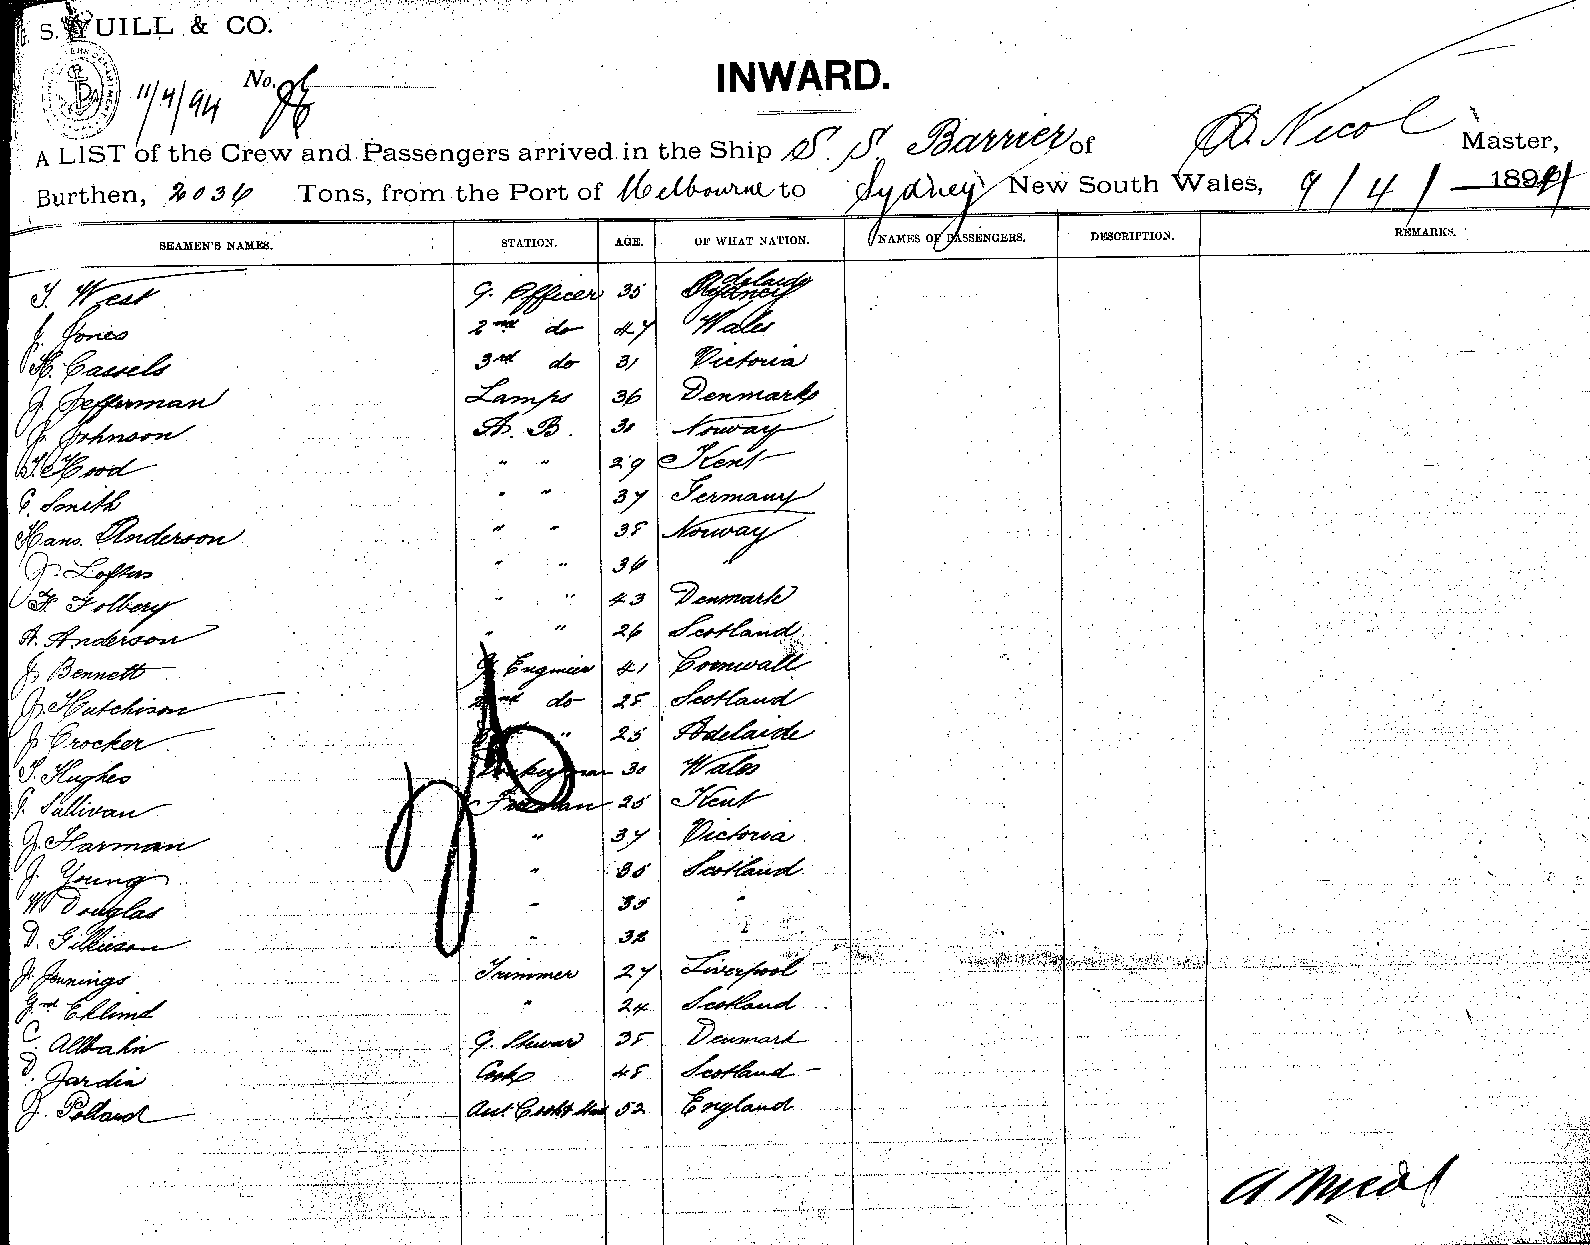 S. YUILL & CO.
INWARD.
11/4/94 No. 26
A LIST of the Crew and Passengers arrived in the Ship S. S. Barrier of A Nicol Master,
Burthen, 2036 Tons, from the Port of Melbourne to Sydney New South Wales, 9/4/ 1894
SEAMEN'S NAMES. STATION. AGE. OF WHAT NATION. NAMES OF PASSENGERS. DESCRIPTION. REMARKS.
T. West Officer 35 Adelaide
J. Jones 2nd do 47 Wales
H. Cassels 3rd do 31 Victoria
J. Jefferman Lamps 36 Denmark
J. Johnson A. B. 30 Norway
T. Hood " " 29 Kent
C. Smith " " 37 Germany
Hans. Anderson " " 38 Norway
J. Loftus " " 36 "
F. Folbery " " 43 Denmark
A. Anderson " " 26 Scotland
J. Bennett Engineer 41 Cornwall
J. Hutchison 2nd do 28 Scotland
J. Crocker " 25 Adelaide
T. Hughes 30 Wales
Sullivan Fireman 25 Kent
J. Harman " 37 Victoria
J. Young " 35 Scotland
W Douglas " 35 "
D. Gillieson " 32 "
J. Jennings Trimmer 27 Liverpool
Eklund " 24 Scotland
C. Allbahn Steward 38 Denmark
D. Jardin Cook 48 Scotland
J. Pollard 52 England
A Nicol